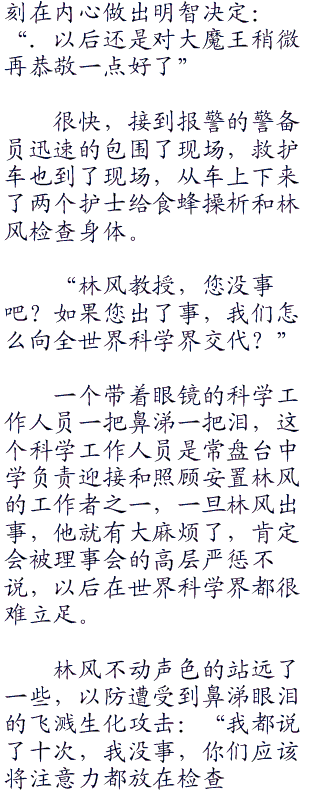 刻在内心做出明智决定：
“．以后还是对大魔王稍微
再恭敬一点好了”
　　很快，接到报警的警备
员迅速的包围了现场，救护
车也到了现场，从车上下来
了两个护士给食蜂操析和林
风检查身体。
　　“林风教授，您没事
吧？如果您出了事，我们怎
么向全世界科学界交代？”
　　一个带着眼镜的科学工
作人员一把鼻涕一把泪，这
个科学工作人员是常盘台中
学负责迎接和照顾安置林风
的工作者之一，一旦林风出
事，他就有大麻烦了，肯定
会被理事会的高层严惩不
说，以后在世界科学界都很
难立足。
　　林风不动声色的站远了
一些，以防遭受到鼻涕眼泪
的飞溅生化攻击：“我都说
了十次，我没事，你们应该
将注意力都放在检查